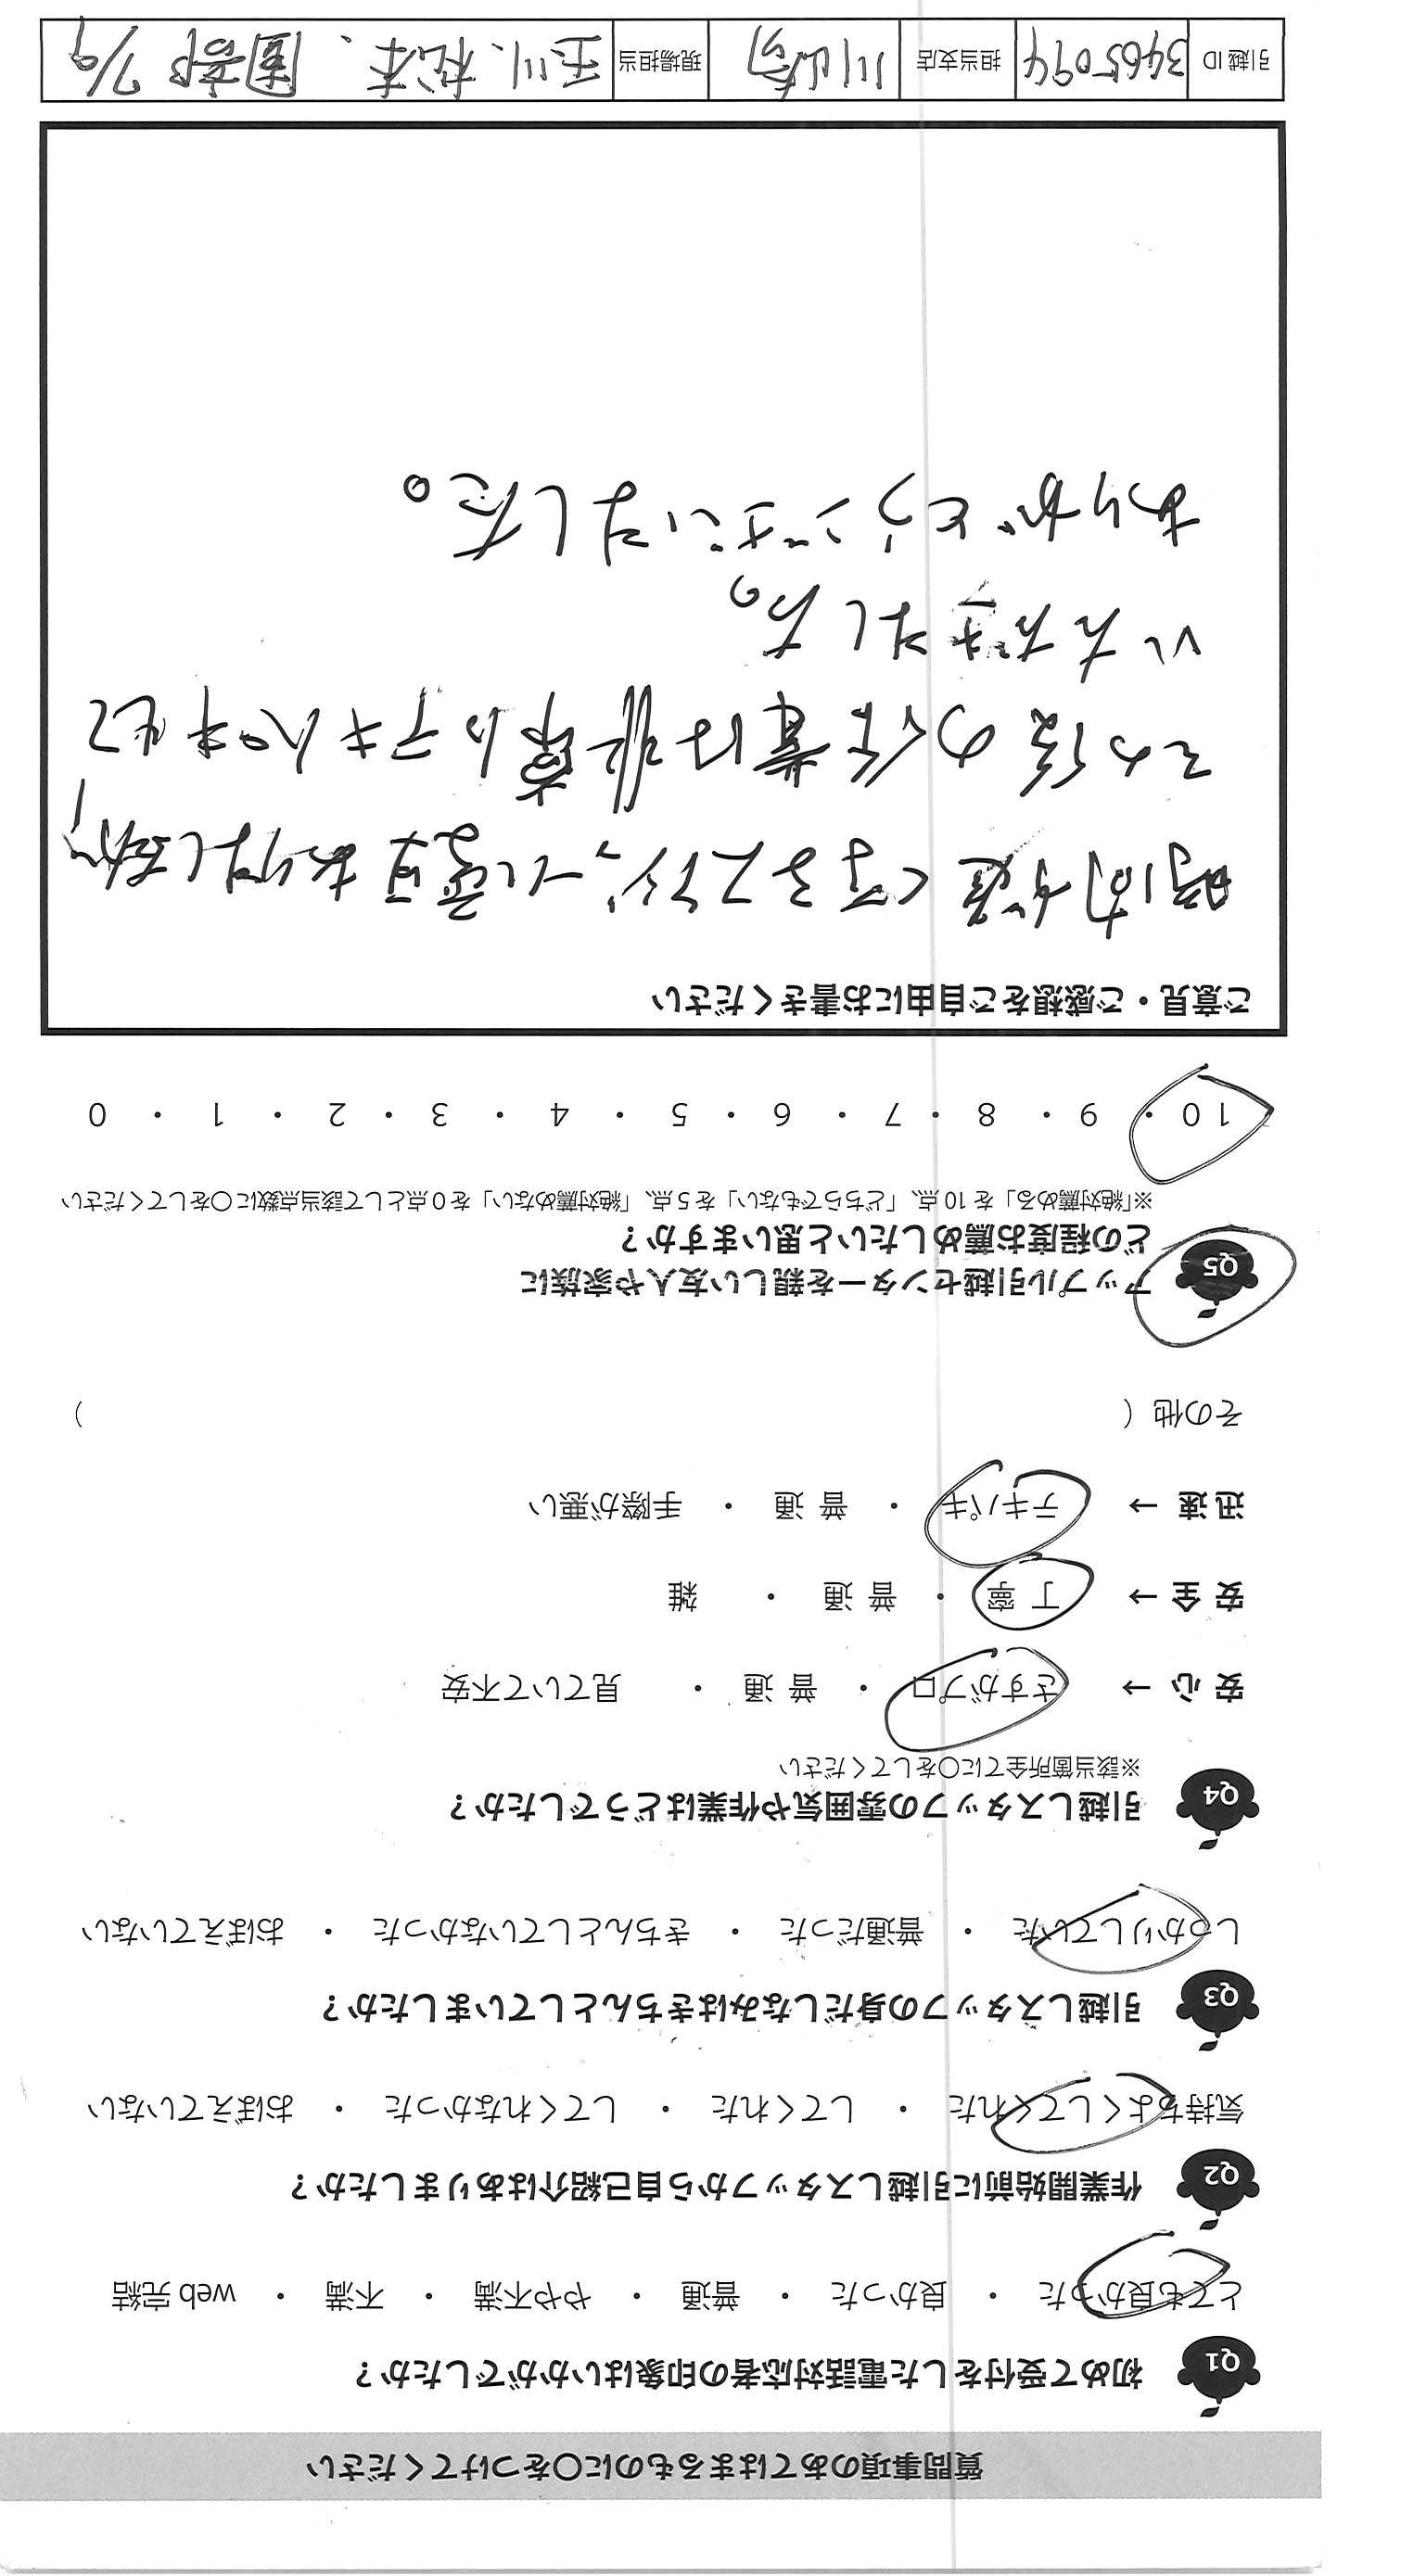 質問事項のあてはまるものに〇をつけてください
Q1 初めて受付をした電話対応者の印象はいかがでしたか？
とても良かった ・ 良かった ・ 普通 ・ やや不満 ・ 不満 ・ web 完結
Q2 作業開始前に引越しスタッフから自己紹介はありましたか？
気持ちよくしてくれた ・ してくれた ・ してくれなかった ・ おぼえていない
Q3 引越しスタッフの身だしなみはきちんとしていましたか？
しっかりしていた ・ 普通だった ・ きちんとしていなかった ・ おぼえていない
Q4 引越しスタッフの雰囲気や作業はどうでしたか？
※該当箇所全てに〇をしてください
安 心 → さすがプロ ・ 普 通 ・ 見ていて不安
安 全 → 丁 寧 ・ 普 通 ・ 雑
迅 速 → テキパキ ・ 普 通 ・ 手際が悪い
その他（ ）
Q5 アップル引越センターを親しい友人や家族に
どの程度お薦めしたいと思いますか？
※「絶対薦める」を 10 点、「どちらでもない」を 5 点、「絶対薦めない」を 0 点として該当点数に〇をしてください
10 ・ 9 ・ 8 ・ 7 ・ 6 ・ 5 ・ 4 ・ 3 ・ 2 ・ 1 ・ 0
ご意見・ご感想をご自由にお書きください
時間が遅くなる
その後の作業は非常にテキパキして
いただきました。
ありがとうございました。
引越 ID 3465094 担当支店 川崎 現場担当 玉川、松本、園部 7/9